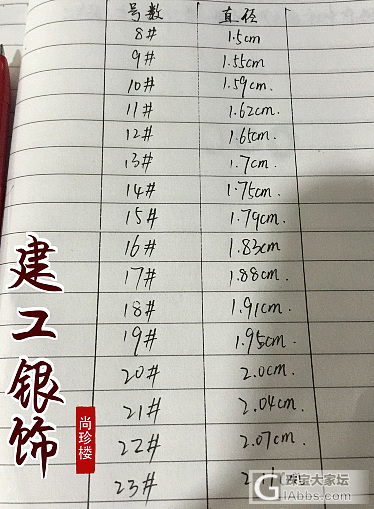 号数 直径
8# 1.5cm
9# 1.55cm
10# 1.59cm.
11# 1.62cm.
12# 1.65cm.
13# 1.7cm.
14# 1.75cm.
15# 1.79cm.
16# 1.83cm
17# 1.88cm.
18# 1.91cm.
19# 1.95cm.
20# 2.0cm.
21# 2.04cm.
22# 2.07cm.
23#
建工银饰
尚珍楼
珠宝大家坛
GIAbbs.com